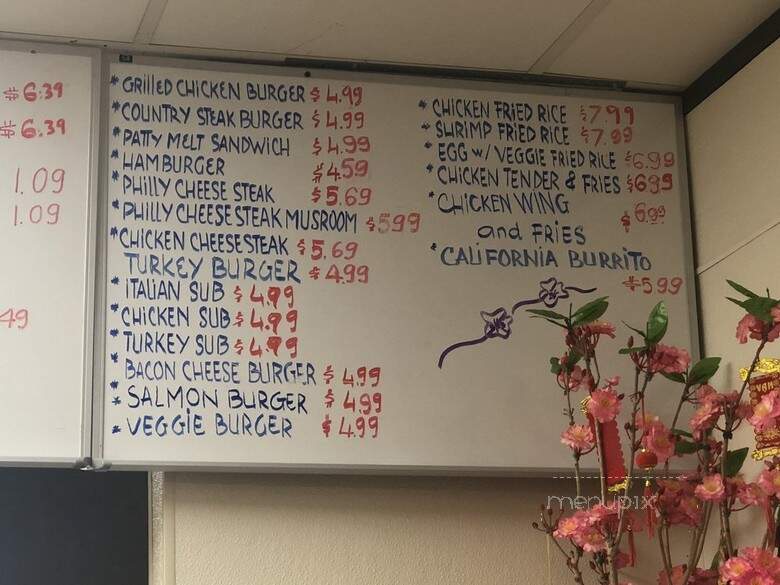 $6.39
$6.39
1.09
1.09
49
* GRILLED CHICKEN BURGER $4.99
* COUNTRY STEAK BURGER $4.99
* PATTY MELT SANDWICH $4.99
* HAMBURGER $4.59
* PHILLY CHEESE STEAK $5.69
* PHILLY CHEESE STEAK MUSROOM $5.99
* CHICKEN CHEESESTEAK $5.69
TURKEY BURGER $4.99
* ITALIAN SUB $4.99
* CHICKEN SUB $4.99
* TURKEY SUB $4.99
* BACON CHEESE BURGER $4.99
* SALMON BURGER $4.99
* VEGGIE BURGER $4.99
* CHICKEN FRIED RICE $7.99
* SHRIMP FRIED RICE $7.99
* EGG w/ VEGGIE FRIED RICE $6.99
* CHICKEN TENDER & FRIES $6.99
* CHICKEN WING
and FRIES $6.99
* CALIFORNIA BURRITO
$5.99
menupix